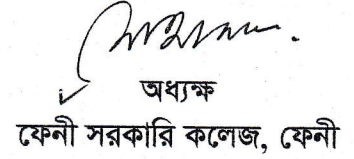 অধ্যক্ষ
ফেনী সরকারি কলেজ, ফেনী